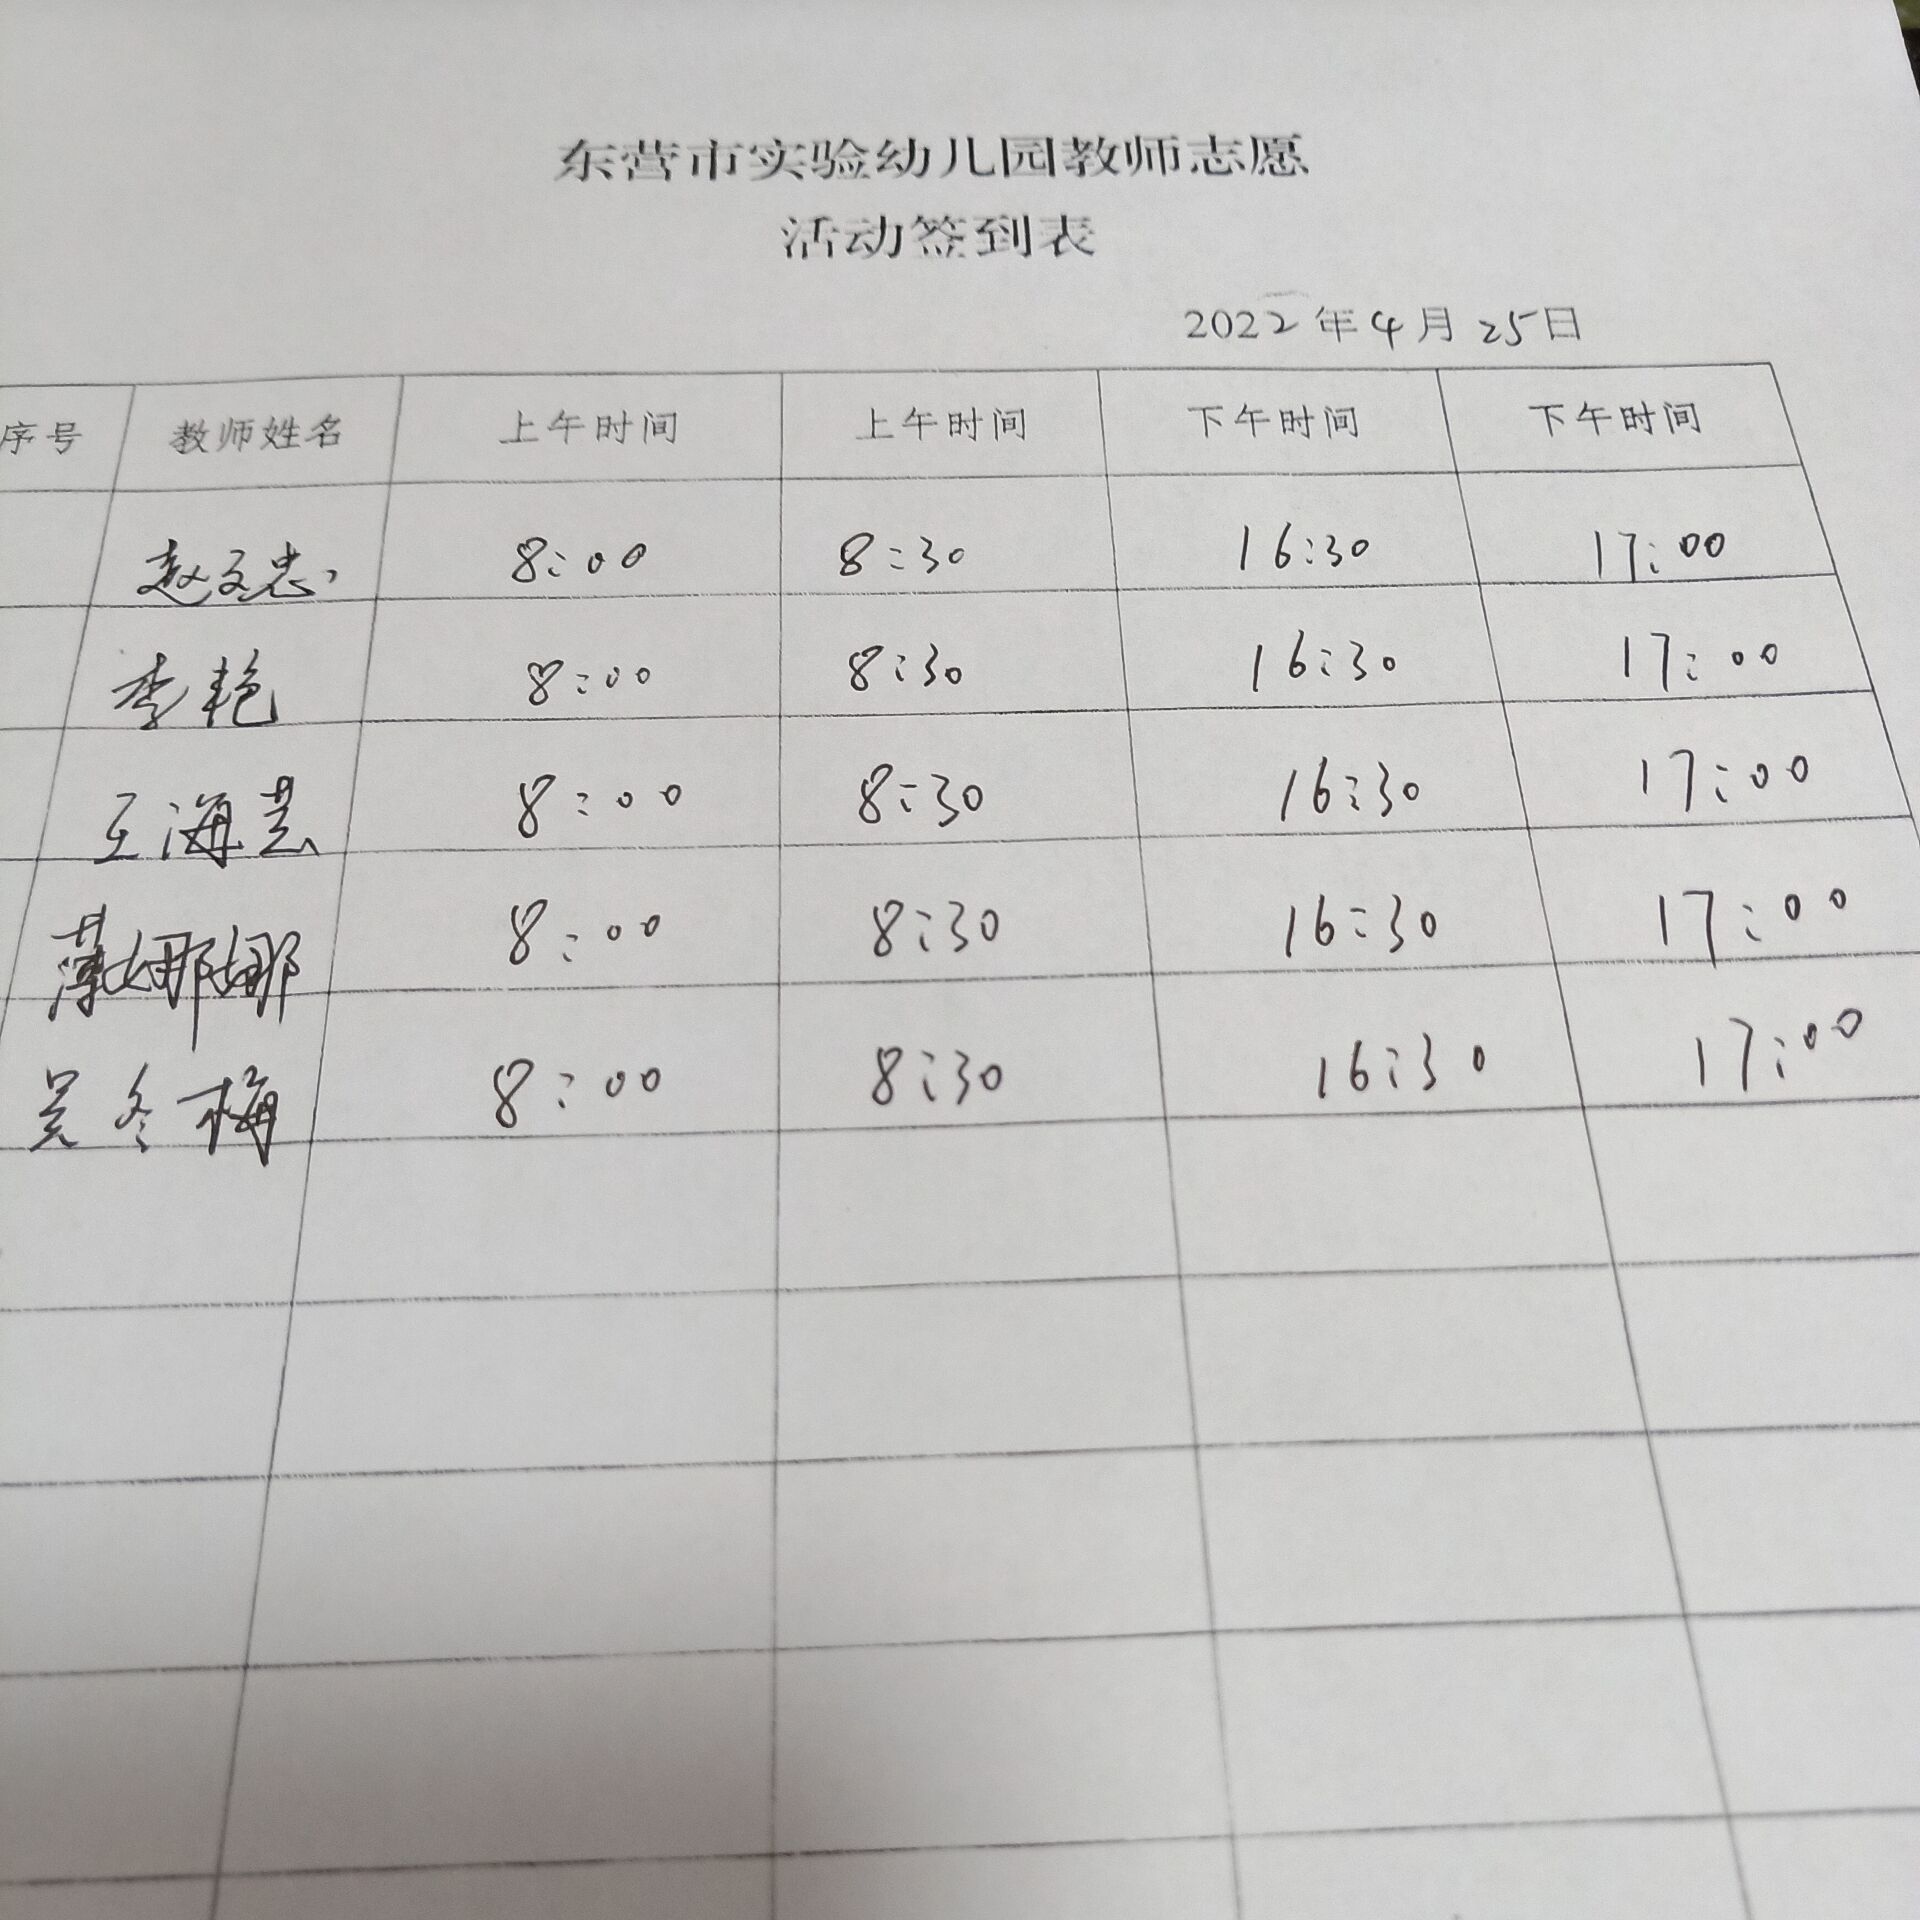 东营市实验幼儿园教师志愿
活动签到表
2022年4月25日
序号 教师姓名 上午时间 上午时间 下午时间 下午时间
赵文忠 8:00 8:30 16:30 17:00
李艳 8:00 8:30 16:30 17:00
王海芸 8:00 8:30 16:30 17:00
薄娜娜 8:00 8:30 16:30 17:00
吴冬梅 8:00 8:30 16:30 17:00